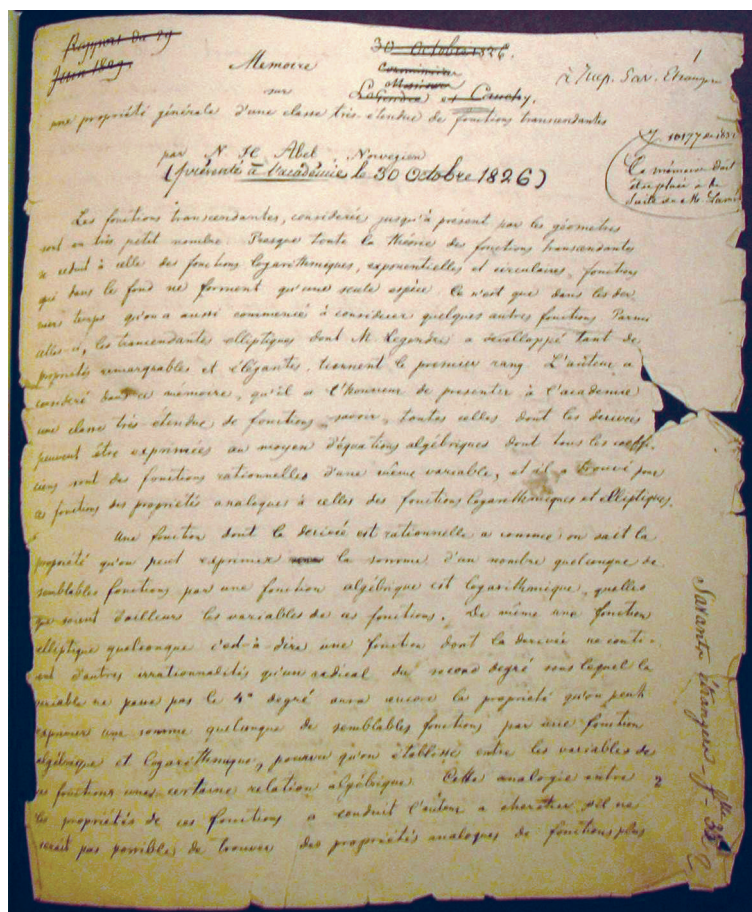 Rapport du 29
Juin 1829
30 Octobre 1826.
Commissaires
Messieurs
Legendre et Cauchy.
1
Memoire
sur
une propriété générale d'une classe très-étendue de fonctions transcendantes
par N. H. Abel, Norvegien
(présenté à l'académie le 30 Octobre 1826)
Sav. Etrangers
Ce mémoire doit
être placé à la
suite de M.
Les fonctions transcendantes, considerées jusqu'à présent par les géometres
sont en très petit nombre. Presque toute la théorie des fonctions transcendantes
se reduit à celle des fonctions logarithmiques, exponentielles et circulaires, fonctions
qui dans le fond ne forment qu'une seule espèce. Ce n'est que dans les der
niers temps qu'on a aussi commencé à considerer quelques autres fonctions. Parmi
celles-ci, les transcendantes elliptiques dont M. Legendre a developpé tant de
propriétés remarquables et élégantes, tiennent le premier rang. L'auteur a
consideré dans ce mémoire, qu'il a l'honneur de presenter à l'academie
une classe très étendue de fonctions, savoir, toutes celles dont les derivées
peuvent être exprimées au moyen d'équations algébriques dont tous les coeffi-
ciens sont des fonctions rationnelles d'une même variable, et il a trouvé pour
ces fonctions des propriétés analogues à celles des fonctions logarithmiques et elliptiques.
Une fonction dont la derivée est rationnelle a comme on sait la
propriété qu'on peut exprimer la somme d'un nombre quelconque de
semblables fonctions par une fonction algébrique et logarithmique, quelles
que soient d'ailleurs les variables de ces fonctions. De même une fonction
elliptique quelconque c'est-à-dire une fonction dont la derivée ne conti-
ent d'autres irrationnalités qu'un radical du second degré sous lequel la
variable ne passe pas le 4e degré aura encore la propriété qu'on peut
exprimer une somme quelconque de semblables fonctions par une fonction
algébrique et logarithmique, pourvu qu'on établisse entre les variables de
ces fonctions une certaine relation algébrique. Cette analogie entre
les propriétés de ces fonctions a conduit l'auteur a chercher s'il ne
serait pas possible de trouver des propriétés analogues de fonctions plus
Savants étrangers